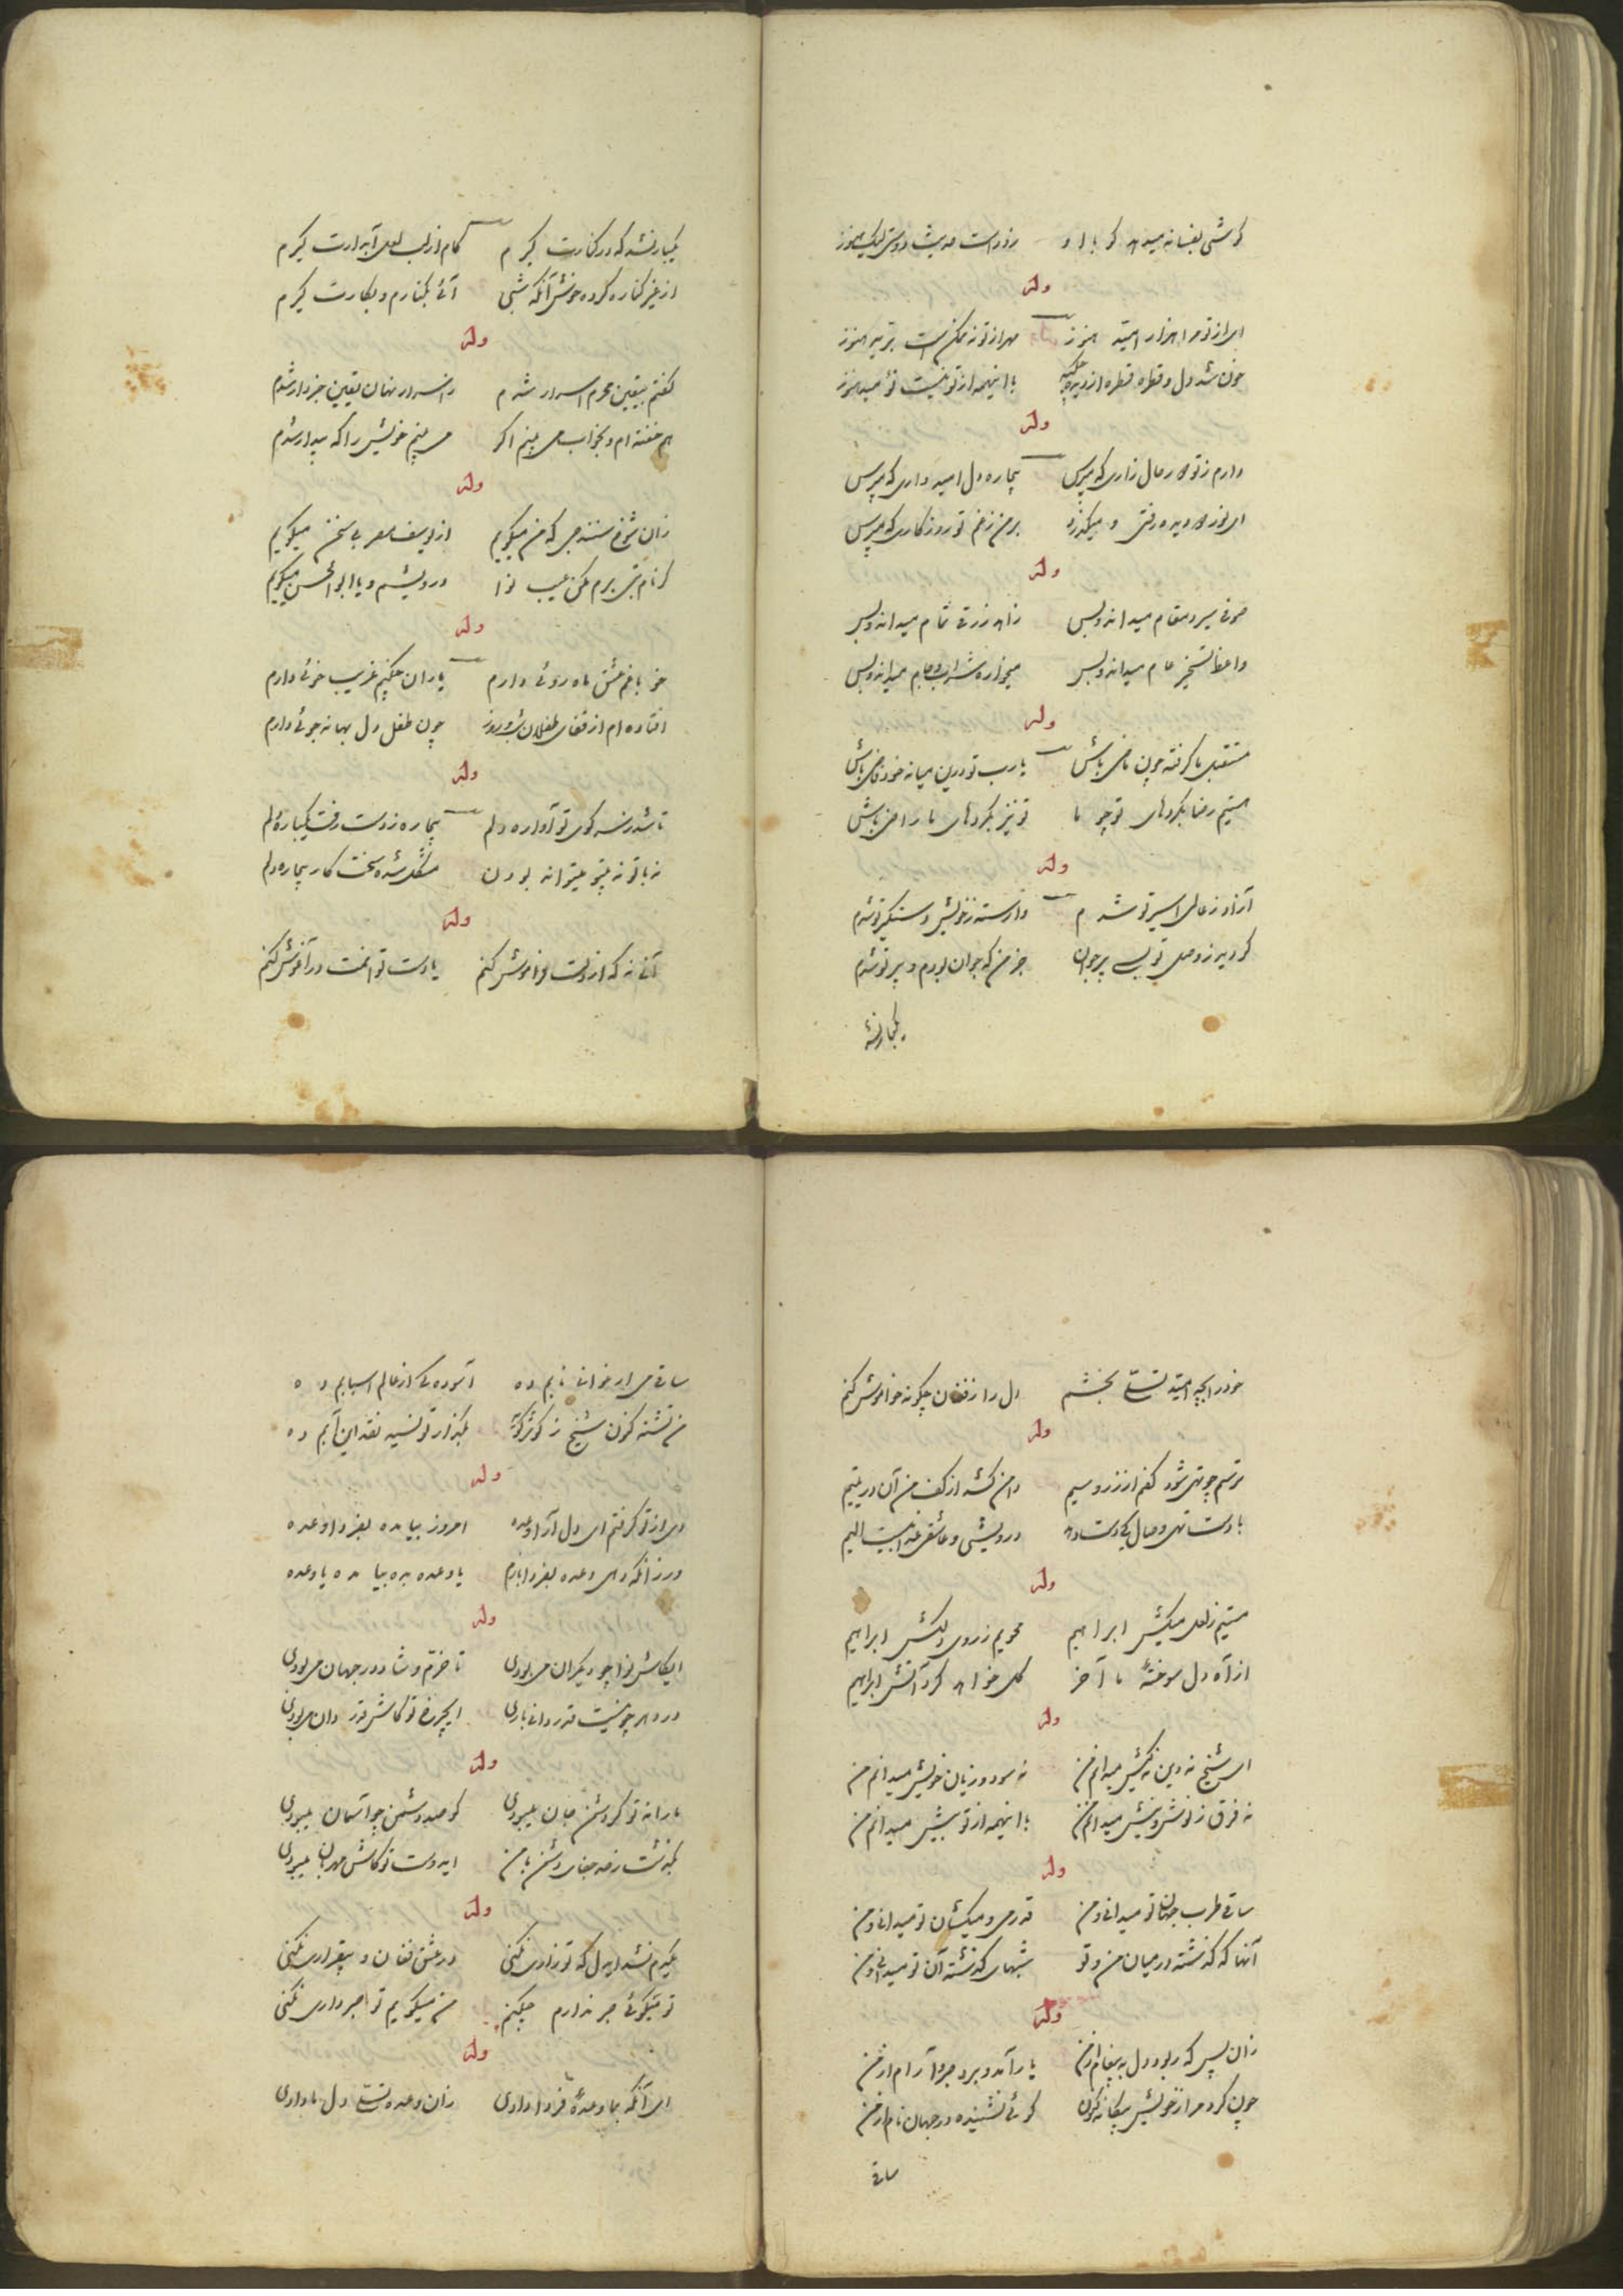 گوشی بفسانه میدهد گو با او
روز است حدیث دوستی لیک هنوز
وله
ای از تو مرا هزار امید هنوز
مهر از تو نه ممکن است
خون شد دل و قطره قطره از دیده چکید
با اینهمه از تو نیست نومید هنوز
وله
دارم ز تو در حال زاری که مپرس
بیچاره دل امیدواری که مپرس
ای نور دو دیده رفتی و میگذرد
بر من ز غم تو روزگاری که مپرس
وله
صوفی سیر و مقام میداند و بس
زاهد زرقی تمام میداند و بس
واعظ تسخیر عام میداند و بس
میخواره شراب و جام میداند و بس
وله
مستقبل ما گرفته چون ماضی باش
یا رب تو درین میانه خود قاضی باش
هستیم رضا بکردهای تو چو ما
تو نیز بکردهای ما راضی باش
وله
آزاد ز عالمی اسیر تو شدم
وارسته ز خویش و دستگیر تو شدم
گردید ز وصل تو بسی پیر جوان
جز من که جوان بودم و پیر تو شدم
یکبار نشد
یکبار نشد که در کنارت گیرم
کام از لب لعل آبدارت گیرم
از غیر کناره کرده خوش آنکه شبی
آئی بکنارم و بکارت گیرم
وله
گفتم بیقین محرم اسرار شدم
در اسرار نهان یقین خبردار شدم
هم خفته ام و بخواب می بینم اگر
می بینم خویش را که بیدار شدم
وله
زان شوخ سنندجی که من میگویم
از یوسف مصر بی سخن میگویم
گر نام بتی برم مکن عیب نوا
درویشم و یا ابوالحسن میگویم
وله
خو با غم عشق ماه روئی دارم
یاران چکنم غریب خوئی دارم
افتاده ام از قفای طفلان شب و روز
چون طفل دل بهانه جوئی دارم
وله
تا شد ز سر کوی تو آواره دلم
بیچاره ز دست رفت یکباره دلم
نه با تو نه بیتو میتواند بودن
مشکل شده سخت کار بیچاره دلم
وله
آنی نه که از دلت فراموش کنم
یا دست توانمت در آغوش کنم
خود را بچه امید تسلی بخشم
دل را ز فغان چگونه خاموش کنم
وله
ترسم چو تهی شود کفم از زر و سیم
دامن کشد از کف من آن در یتیم
با دست تهی وصال کی دست دهد
درویشی و عاشقی عذابیست الیم
وله
مستیم ز لعل میکش ابراهیم
محویم ز روی دلکش ابراهیم
از آه دل سوخته ما آخر
گل خواهد کرد آتش ابراهیم
وله
ای شیخ نه دین نه کیش میدانم من
نه سود و زیان خویش میدانم من
نه فرق ز نوش و نیش میدانم من
با اینهمه از تو بیش میدانم من
وله
ساقی طرب جهان تو میدانی و من
قدر می و میکشان تو میدانی و من
آنها که گذشته در میان من و تو
شبهای گذشته آن تو میدانی و من
وله
زان پس که ربود دل به پیغام از من
یار آمد و برد صبر و آرام از من
چون کرد مرا ز خویش بیگانه کنون
گوئی نشنیده در جهان نام از من
ساقی
ساقی می ارغوانی نابم ده
آسودگی از عالم اسبابم ده
من تشنه کنون شیخ ز کوثر گوید
بگذار تو نسیه نقد این آبم ده
وله
دی از تو گرفتم ای دل آرا وعده
امروز بیا مده بفردا وعده
ور زانکه دهی وعده بفردا بازم
یا وعده بده بیا مده یا وعده
وله
ایکاش نوا چو دیگران می بودی
تا خرم و شاد در جهان می بودی
در دهر چو نیست قدردانی باری
ایچرخ تو کاش قدر دان می بودی
وله
ما را نه تو گر دشمن جان میبودی
گو صد دشمن چو آسمان میبودی
بگذشت ز حد جفای دشمن با من
ایدوست تو کاش مهربان میبودی
وله
گیرم نشد ایدل که تو زاری نکنی
در عشق فغان و بیقراری نکنی
تو میگوئی صبر ندارم چکنم
من میگویم تو صبر داری نکنی
وله
ای آنکه بما وعده فردا دادی
زان وعده تسلی دل ما دادی